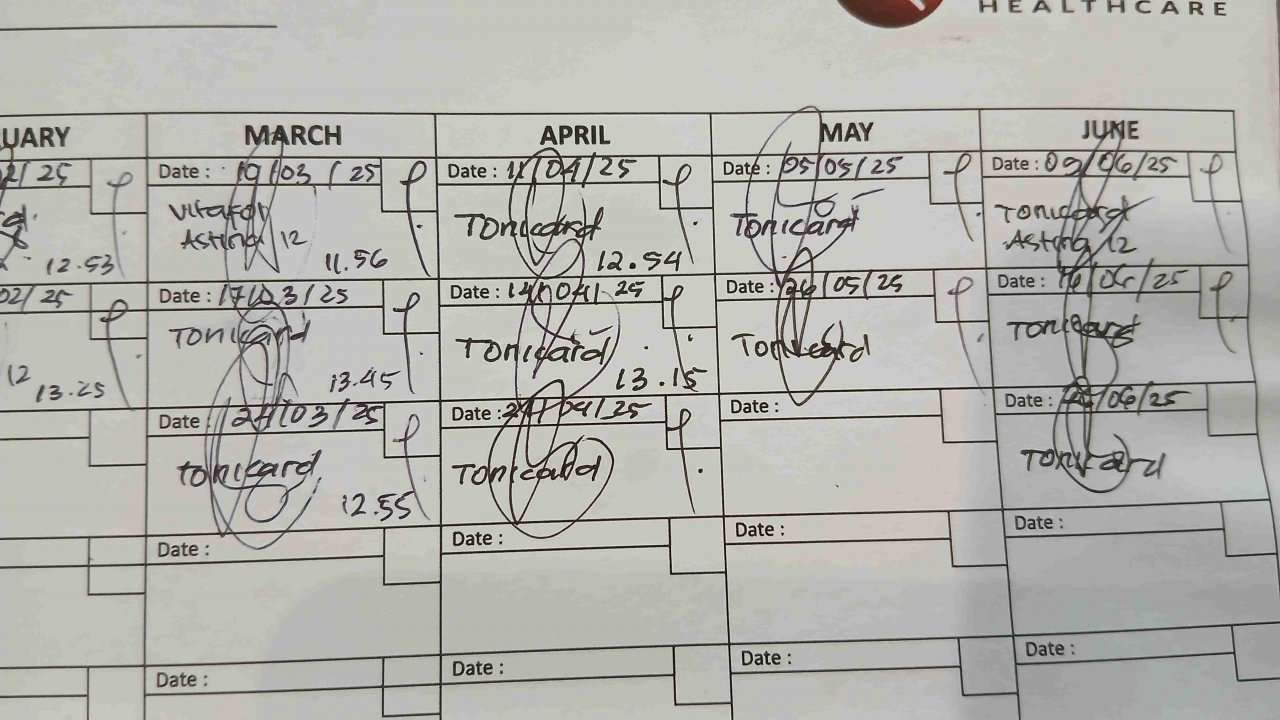 HEALTHCARE
UARY MARCH APRIL MAY JUNE
2/25 Date : 19/03/25 Date : 11/04/25 Date : 05/05/25 Date : 09/06/25
Tonicard Tonicard Tonicard
Asting 12 Asting 12
12.53 11.56 12.54
02/25 Date : 17/03/25 Date : 14/04/25 Date : 26/05/25 Date : 16/06/25
Tonicard Tonicard Tonicard Tonicard
12 13.25 13.45 13.15
Date : 24/03/25 Date : /04/25 Date : Date : /06/25
Tonicard Tonicard Tonicard
12.55
Date : Date : Date : Date :
Date : Date : Date : Date :